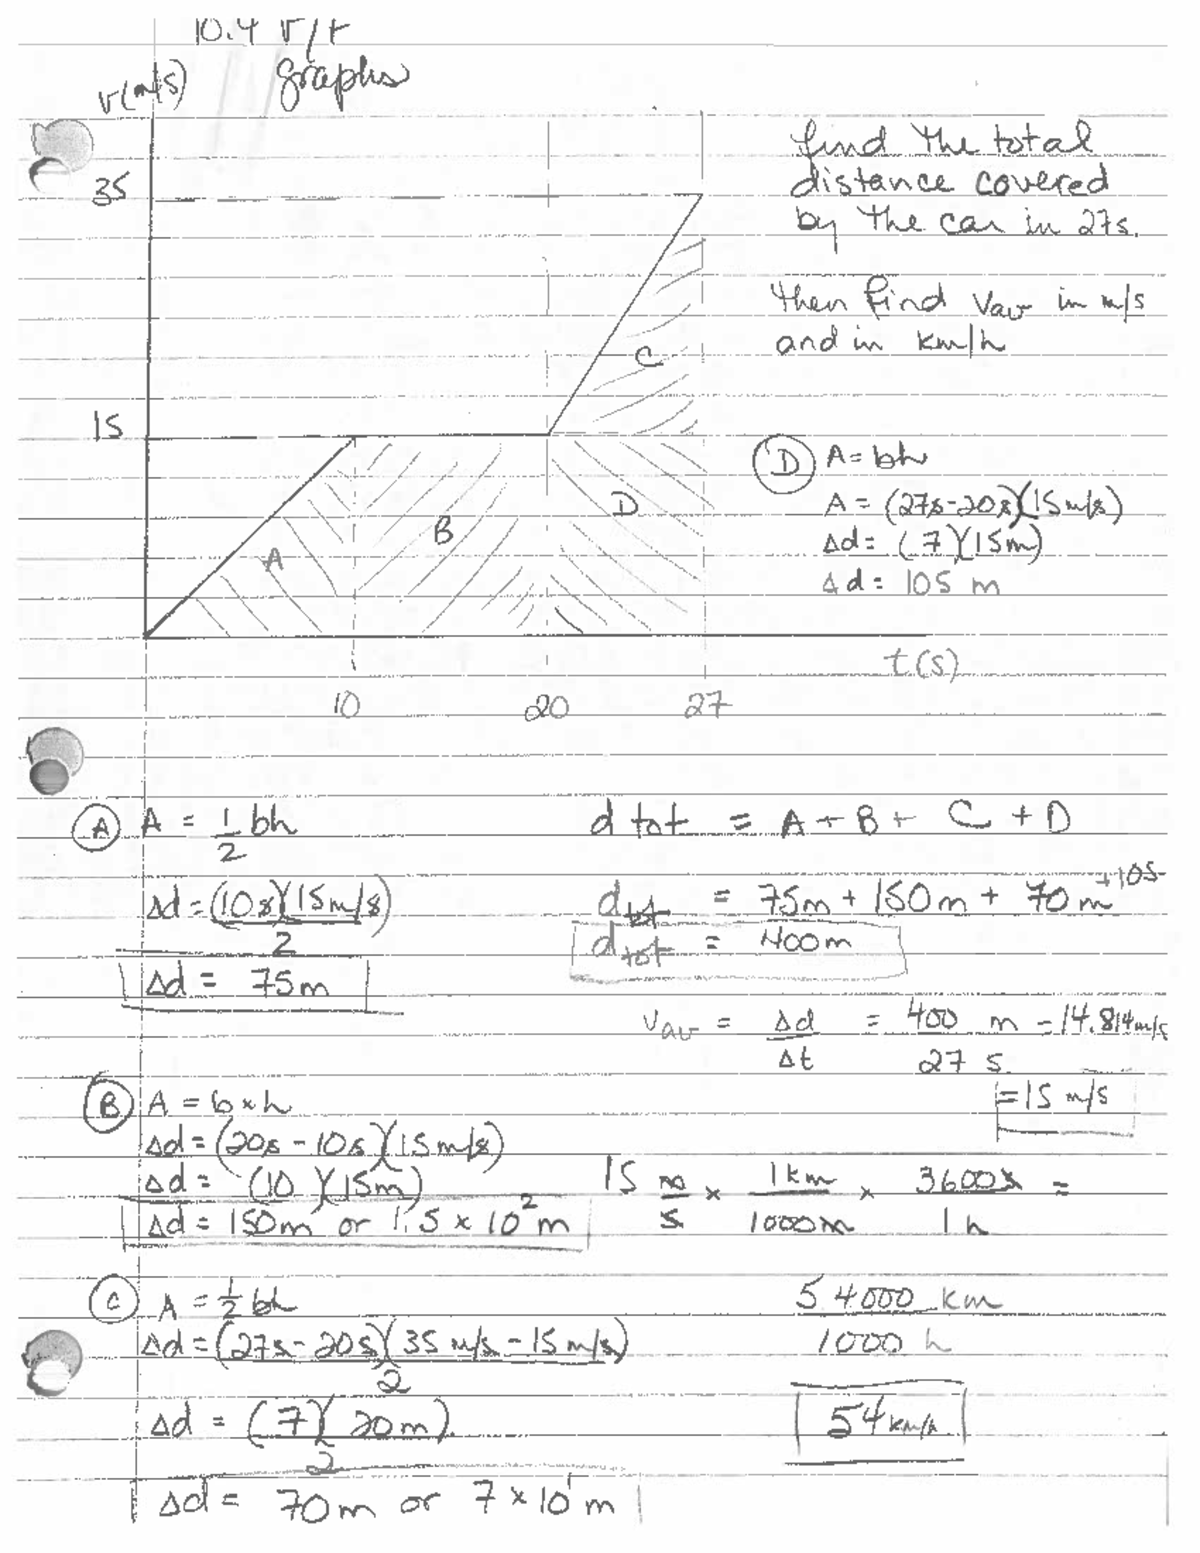 10.4 v/t
graphs
v(m/s)
35
15
find the total
distance covered
by the car in 27s.
then find Vav in m/s
and in km/h
C
A
B
D
(D) A = bh
A = (27s-20s)(15m/s)
Δd = (7)(15m)
Δd = 105 m
t(s)
10 20 27
(A) A = 1/2 bh
Δd = (10s)(15m/s)/2
Δd = 75m
d tot = A + B + C + D
d tot = 75m + 150m + 70m +105
d tot = 400m
Vav = Δd/Δt = 400 m/27 s = 14.814m/s
= 15 m/s
(B) A = b × h
Δd = (20s - 10s)(15m/s)
Δd = (10)(15m)
Δd = 150m or 1.5 × 10² m
15 m/s × 1km/1000m × 3600s/1h =
54000 km/1000 h
54 km/h
(C) A = 1/2 bh
Δd = (27s - 20s)(35 m/s - 15 m/s)/2
Δd = (7)(20m)/2
Δd = 70m or 7 × 10¹ m